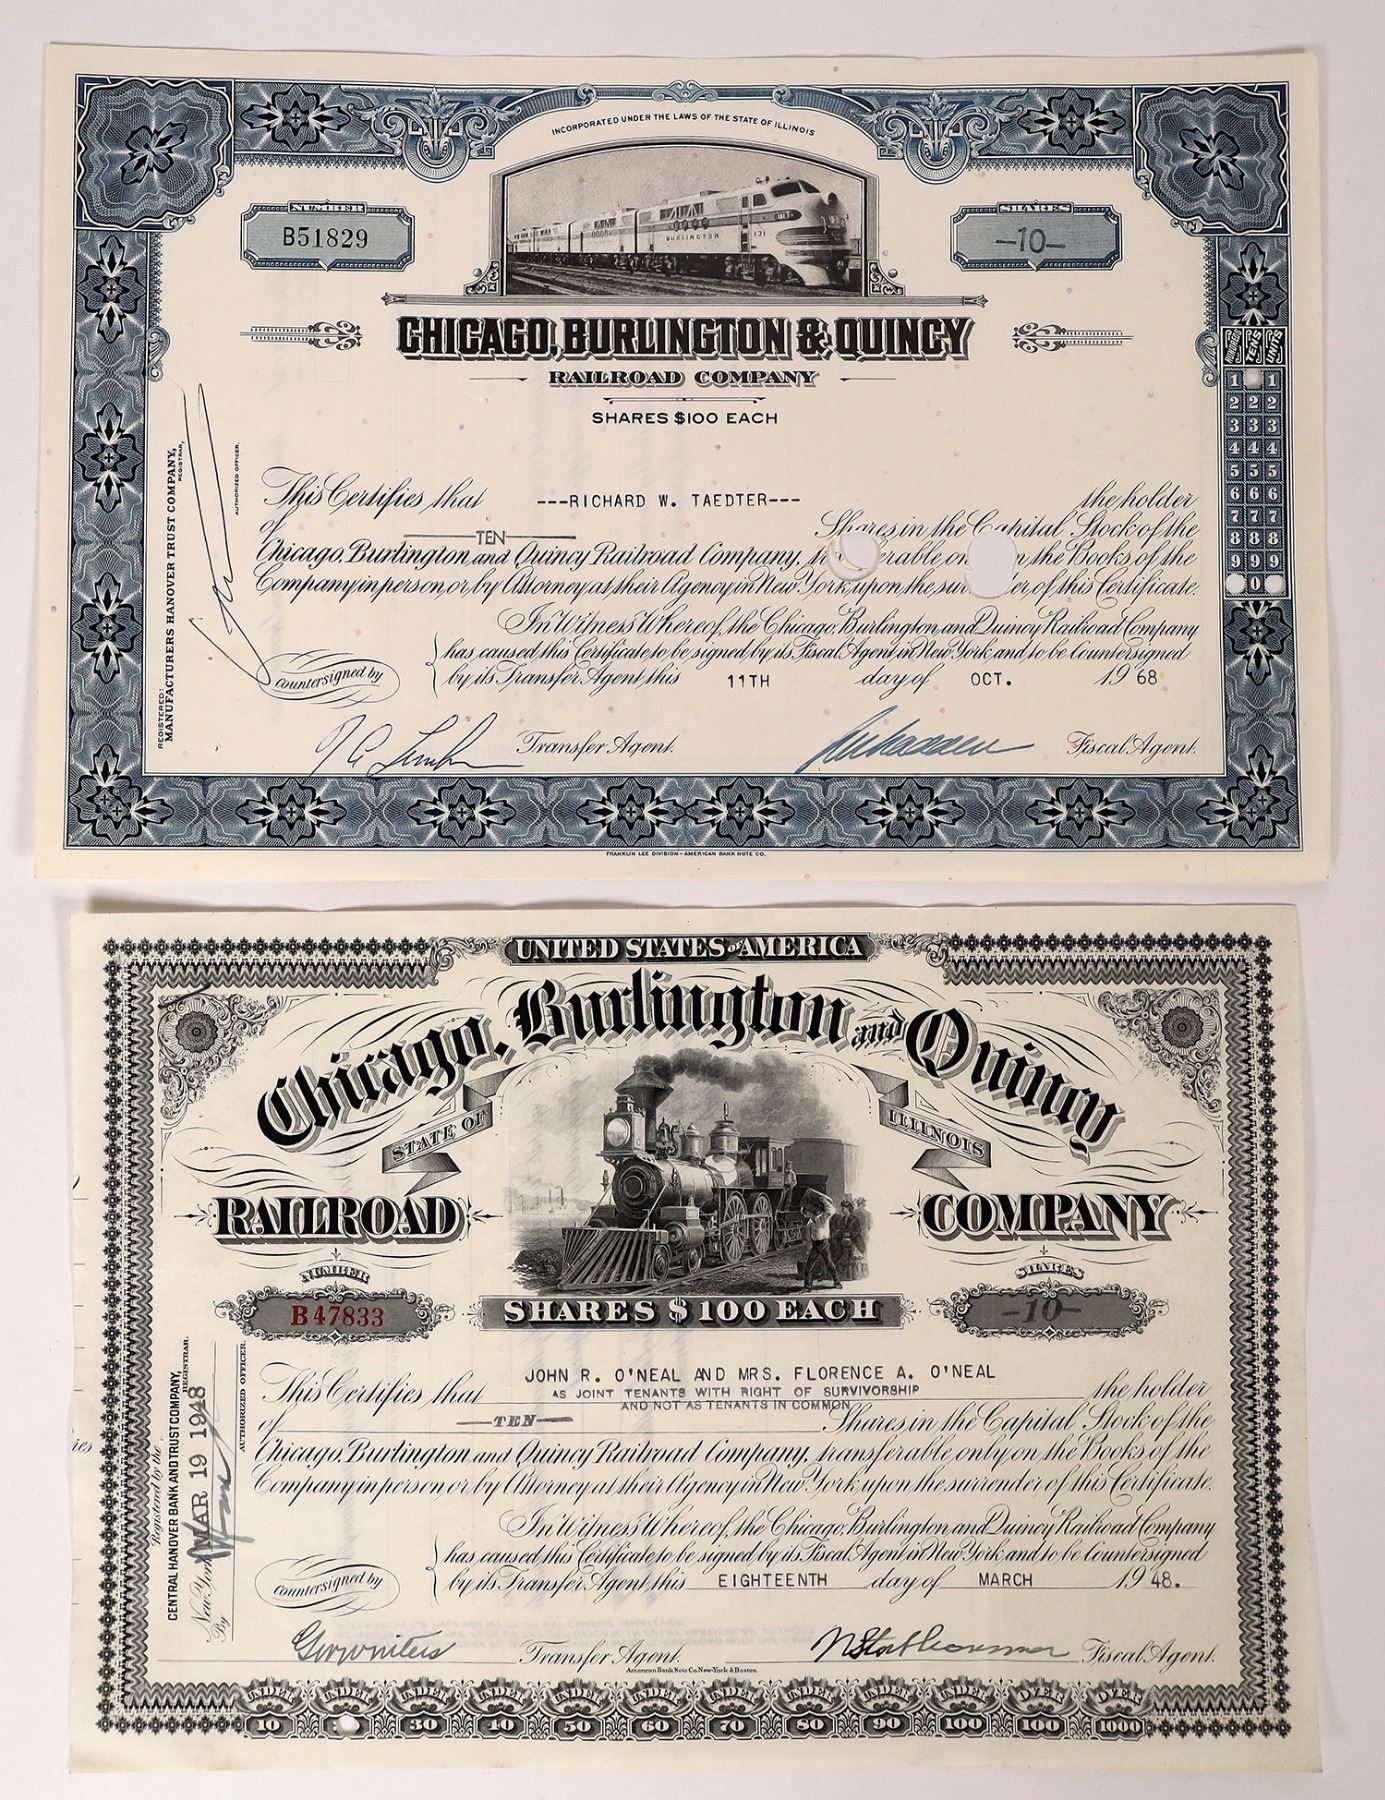 INCORPORATED UNDER THE LAWS OF THE STATE OF ILLINOIS
NUMBER
B51829
SHARES
-10-
BURLINGTON 131
CHICAGO, BURLINGTON & QUINCY
RAILROAD COMPANY
SHARES $100 EACH
HUNDREDS TENS UNITS
1 1
2 2 2
3 3 3
4 4 4
5 5 5
6 6 6
7 7 7
8 8 8
9 9 9
0
REGISTERED:
MANUFACTURERS HANOVER TRUST COMPANY,
REGISTRAR,
AUTHORIZED OFFICER.
This Certifies that ---RICHARD W. TAEDTER--- the holder
of TEN Shares in the Capital Stock of the
Chicago, Burlington and Quincy Railroad Company, on the Books of the
Company in person or by Attorney at their Agency in New York, upon the of this Certificate.
In Witness Whereof, the Chicago, Burlington and Quincy Railroad Company
has caused this Certificate to be signed by its Fiscal Agent in New York and to be Countersigned
by its Transfer Agent this 11TH day of OCT. 1968
Countersigned by
Transfer Agent. Fiscal Agent.
FRANKLIN LEE DIVISION - AMERICAN BANK NOTE CO.
UNITED STATES OF AMERICA
Chicago, Burlington and Quincy
STATE OF ILLINOIS
RAILROAD COMPANY
NUMBER
B47833
SHARES
-10-
SHARES $100 EACH
Registered by the
CENTRAL HANOVER BANK AND TRUST COMPANY,
REGISTRAR.
New York MAR 19 1948
By
AUTHORIZED OFFICER.
This Certifies that JOHN R. O'NEAL AND MRS. FLORENCE A. O'NEAL the holder
AS JOINT TENANTS WITH RIGHT OF SURVIVORSHIP
AND NOT AS TENANTS IN COMMON
of —TEN— Shares in the Capital Stock of the
Chicago, Burlington and Quincy Railroad Company, transferable only on the Books of the
Company in person or by Attorney at their Agency in New York, upon the surrender of this Certificate.
In Witness Whereof, the Chicago, Burlington and Quincy Railroad Company
has caused this Certificate to be signed by its Fiscal Agent in New York and to be Countersigned
by its Transfer Agent this EIGHTEENTH day of MARCH 1948.
Countersigned by
Transfer Agent. Fiscal Agent.
American Bank Note Co. New-York & Boston.
UNDER UNDER UNDER UNDER UNDER UNDER UNDER UNDER UNDER UNDER OVER OVER
10 30 40 50 60 70 80 90 100 100 1000